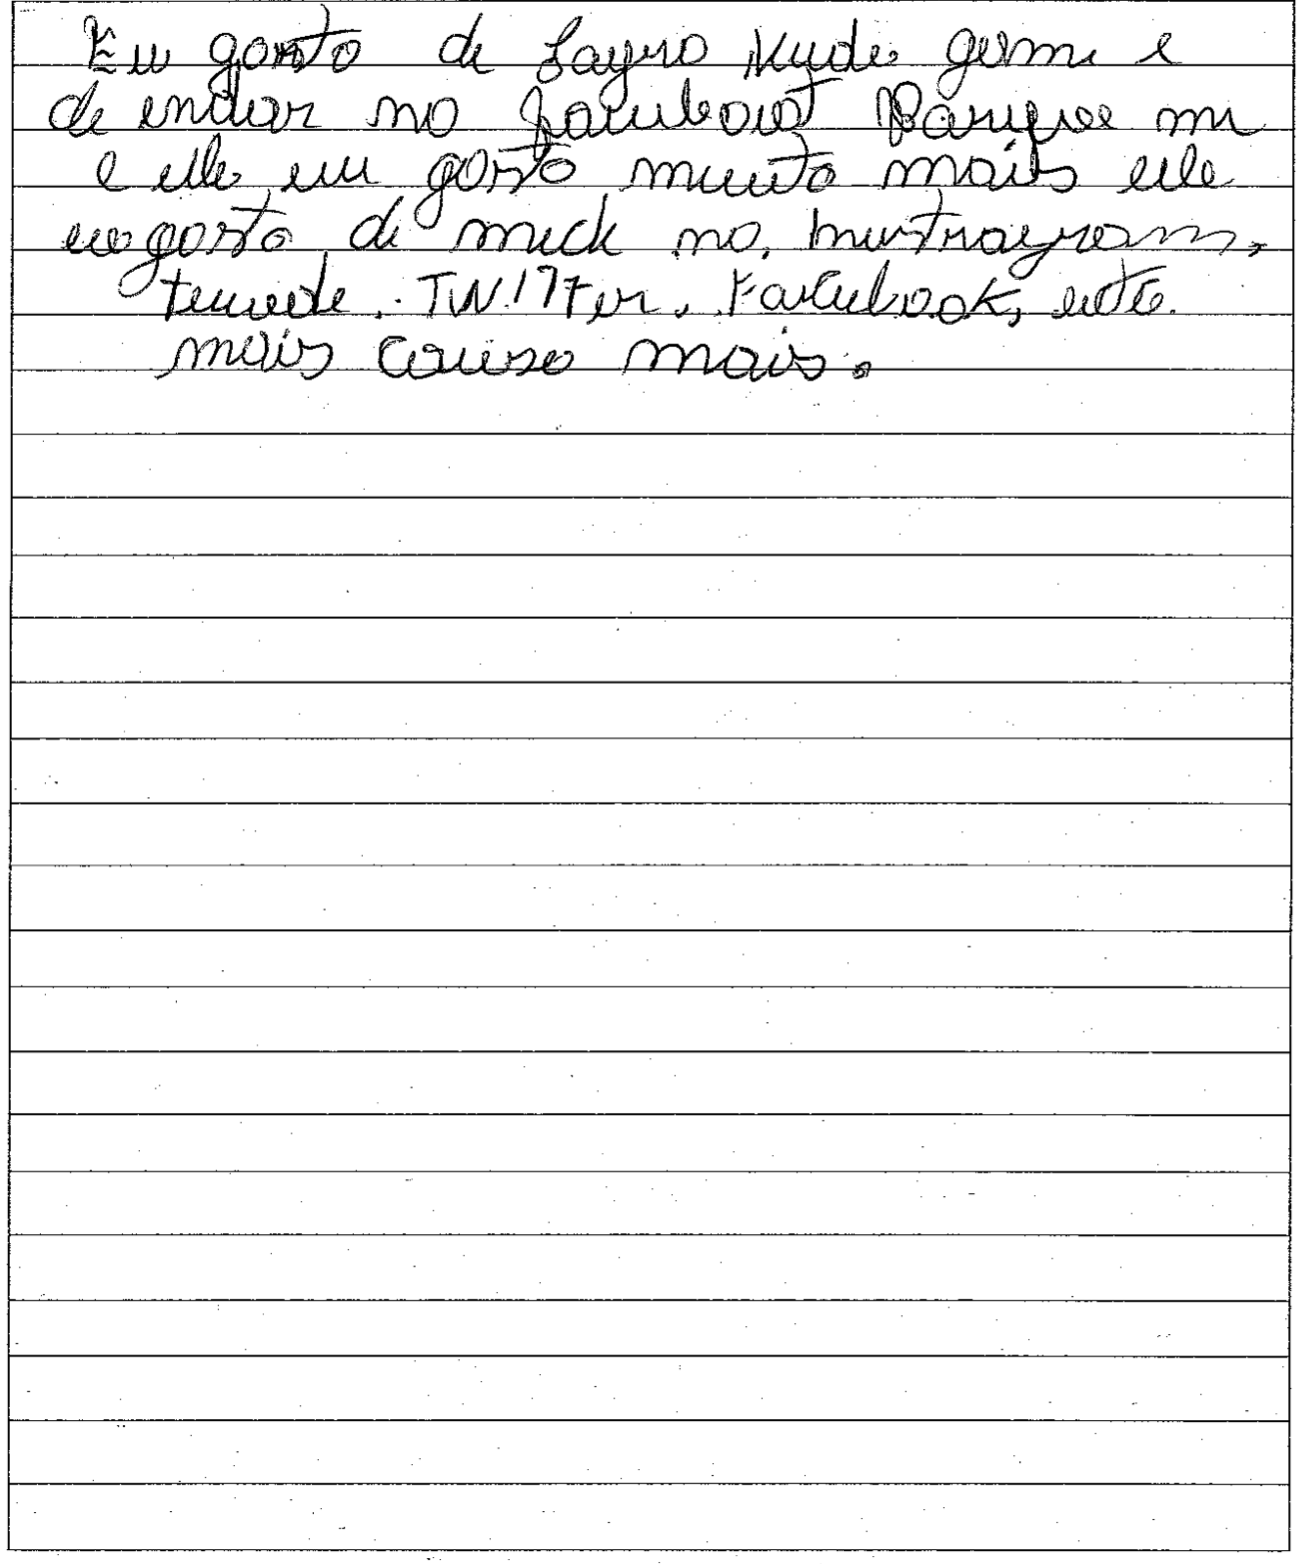 Eu gosto de Jayro Kude germe e
de endar no facubout Barque mu
e elle eu gosto muuto mais elle
eu gosto de meck no, instragram,
teuede. TWITTer. Facubook, ecte.
mais couiso mais.